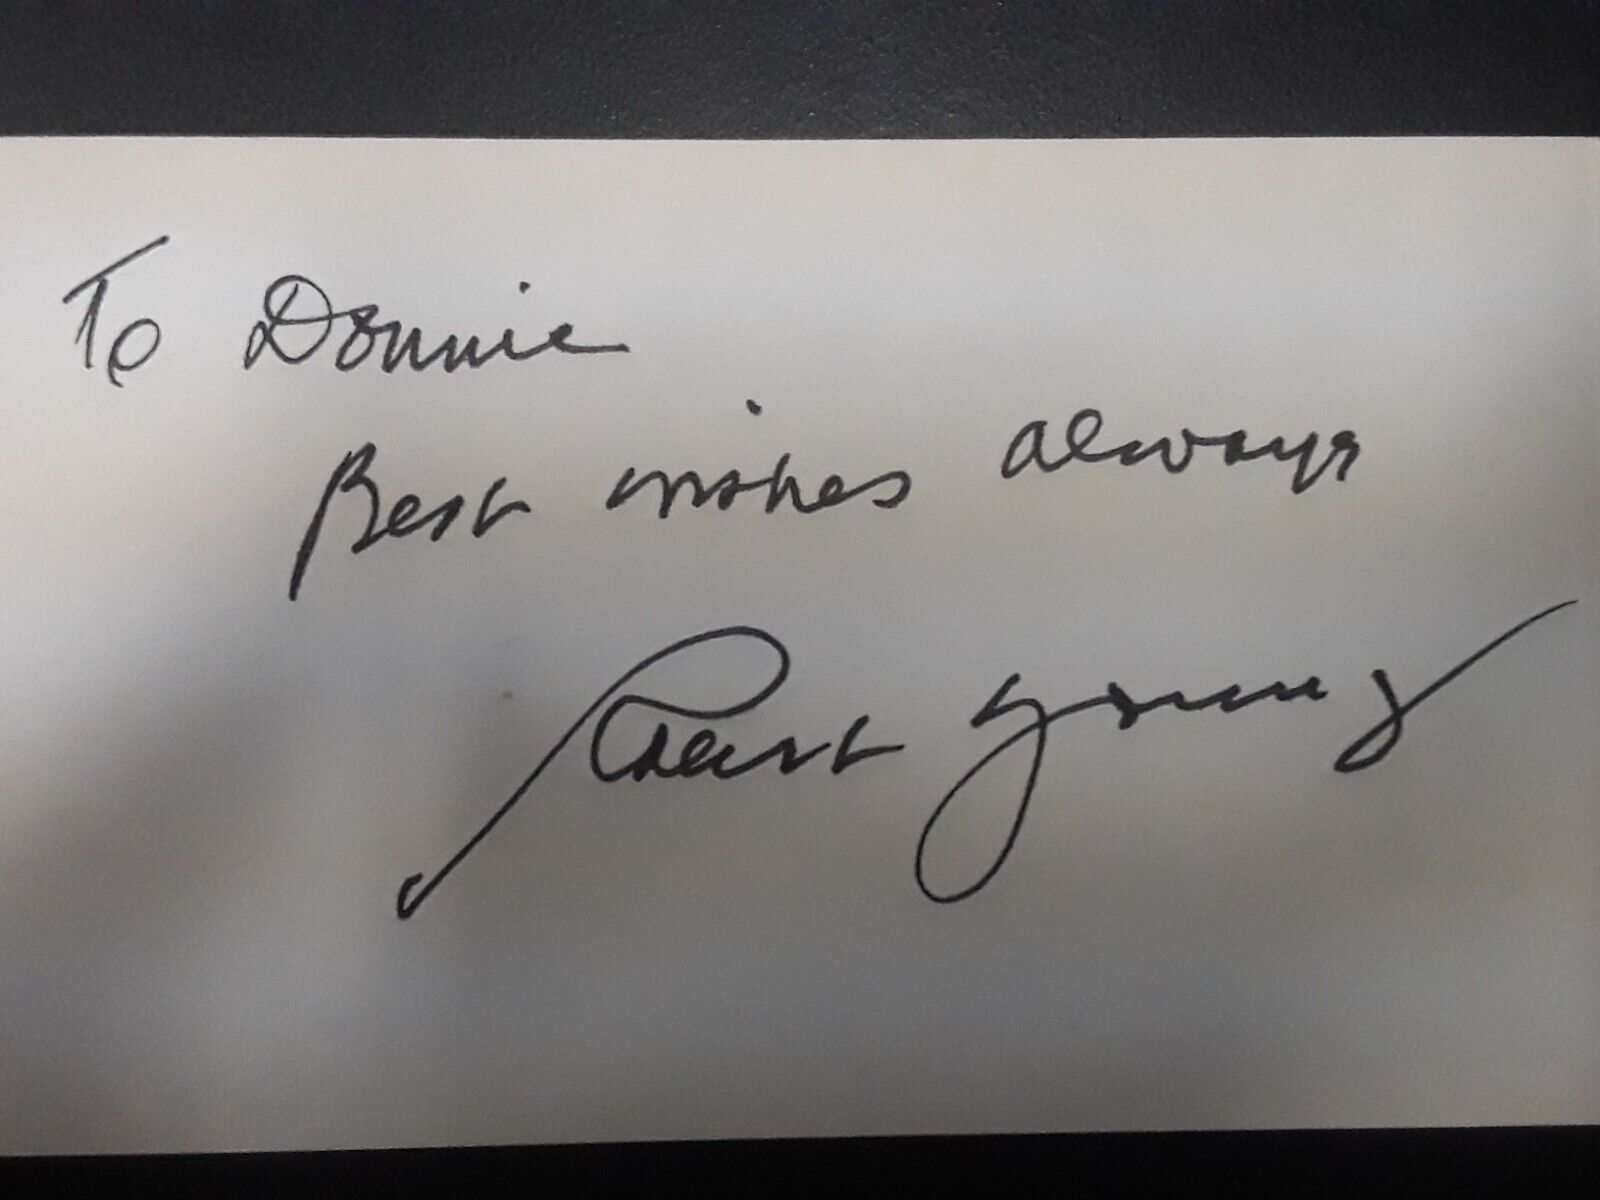 To Donnie
Best wishes always
Young